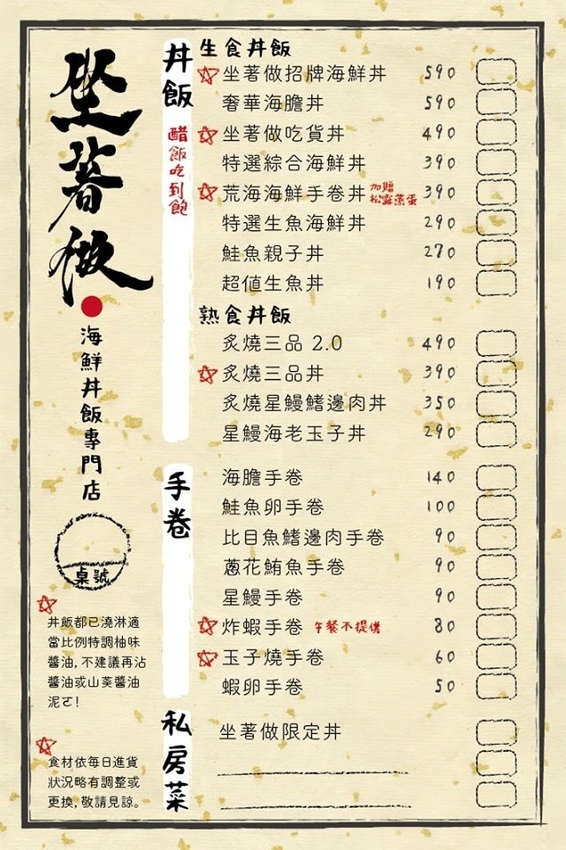 坐著做
海鮮丼飯專門店
桌號
丼飯都已澆淋適
當比例特調柚味
醬油,不建議再沾
醬油或山葵醬油
泥ㄛ!
食材依每日進貨
狀況略有調整或
更換,敬請見諒。
丼飯
醋飯吃到飽
生食丼飯
坐著做招牌海鮮丼 590
奢華海膽丼 590
坐著做吃貨丼 490
特選綜合海鮮丼 390
荒海海鮮手卷丼 加贈松露蒸蛋 390
特選生魚海鮮丼 290
鮭魚親子丼 270
超值生魚丼 190
熟食丼飯
炙燒三品 2.0 490
炙燒三品丼 390
炙燒星鰻鰭邊肉丼 350
星鰻海老玉子丼 290
手卷
海膽手卷 140
鮭魚卵手卷 100
比目魚鰭邊肉手卷 90
蔥花鮪魚手卷 90
星鰻手卷 90
炸蝦手卷 午餐不提供 80
玉子燒手卷 60
蝦卵手卷 50
私房菜
坐著做限定丼